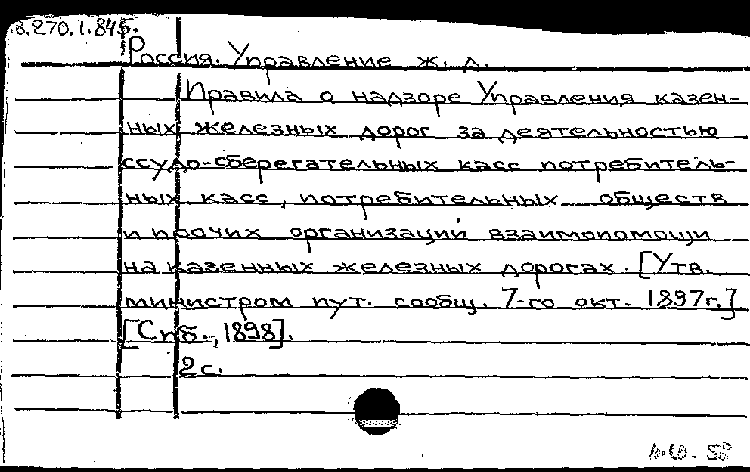 В.270.1.845.
Россия. Управление ж. д.
Правила о надзоре Управления казен-
ных железных дорог за деятельностью
ссудо-сберегательных касс потребитель-
ных касс, потребительных обществ
и прочих организаций взаимопомощи
на казенных железных дорогах. [Утв.
министром пут. сообщ. 7-го окт. 1897г.]
[Спб., 1898].
2с.